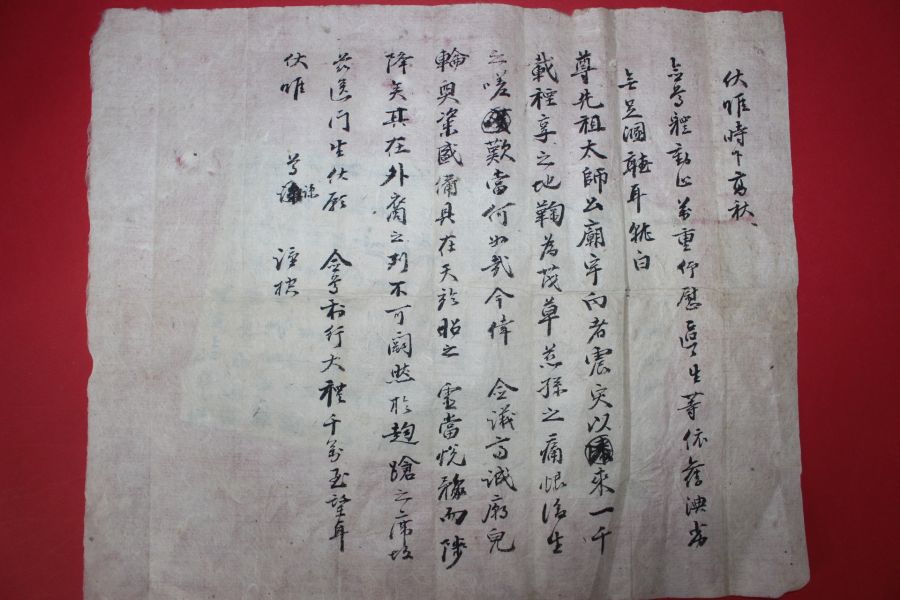 伏惟時下高秋
僉尊體動止萬重仰慰區區生等依舊
無足溷聽耳就白
尊先祖太師公廟宇向者震灾以來一千
載禋享之地鞠為茂草慈孫之痛恨後生
之嗟歎當何如哉今倖 僉議高誠廟皃
輪奐粢盛備具在天於昭之 靈當悅豫而陟
降矣其在外裔之列不可闕然於趨蹌之席故
玆送門生伏願 僉尊利行大禮千萬至望耳
伏惟 尊